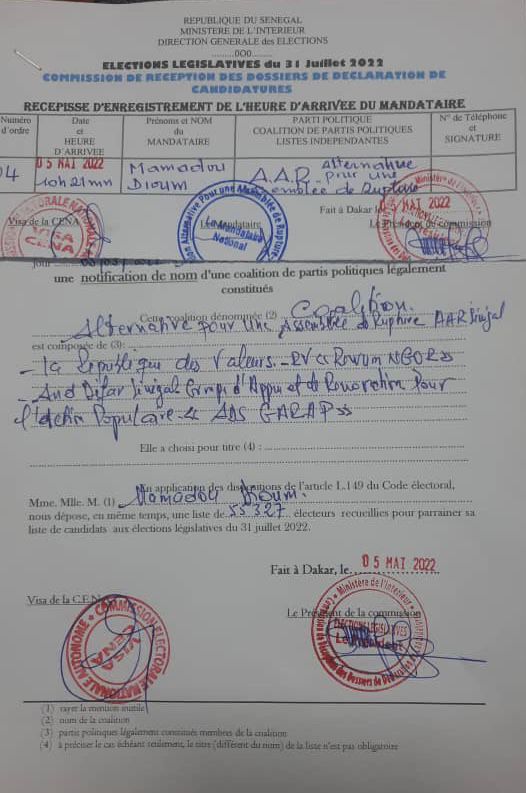 REPUBLIQUE DU SENEGAL
MINISTERE DE L'INTERIEUR
DIRECTION GENERALE des ELECTIONS
.........0O0.........
ELECTIONS LEGISLATIVES du 31 Juillet 2022
COMMISSION DE RECEPTION DES DOSSIERS DE DECLARATION DE
CANDIDATURES
RECEPISSE D'ENREGISTREMENT DE L'HEURE D'ARRIVEE DU MANDATAIRE
Numéro d'ordre
Date et HEURE D'ARRIVEE
Prénoms et NOM du MANDATAIRE
PARTI POLITIQUE COALITION DE PARTIS POLITIQUES LISTES INDEPENDANTES
N° de Téléphone et SIGNATURE
04
05 MAI 2022
10h21mn
Mamadou Dioum
A.A.R Alternative pour une Assemblée de Rupture
Visa de la CENA
Le Mandataire
Fait à Dakar le 05 MAI 2022
Le Président du commission
VISA CENA
Alternative Pour une Assemblée de Rupture
Le Mandataire National
jour
une notification de nom d'une coalition de partis politiques légalement
constitués
Cette coalition dénommée (2) Coalition
Alternative pour une Assemblée de Rupture AAR Sénégal
est composée de (3):
- La République des Valeurs - RV
- And
Populaire
Elle a choisi pour titre (4) :
En application des dispositions de l'article L.149 du Code électoral,
Mme. Mlle. M. (1) Mamadou Dioum
nous dépose, en même temps, une liste de 55327 électeurs recueillies pour parrainer sa
liste de candidats aux élections législatives du 31 juillet 2022.
Fait à Dakar, le 05 MAI 2022
Visa de la C.E.N.A
Le Président de la commission
COMMISSION ELECTORALE NATIONALE AUTONOME
VISA CENA
Ministère de l'Intérieur
ELECTIONS LEGISLATIVES
Le Président
(1) rayer la mention inutile
(2) nom de la coalition
(3) partis politiques légalement constitués membres de la coalition
(4) à préciser le cas échéant seulement, le titre (différent du nom) de la liste n'est pas obligatoire